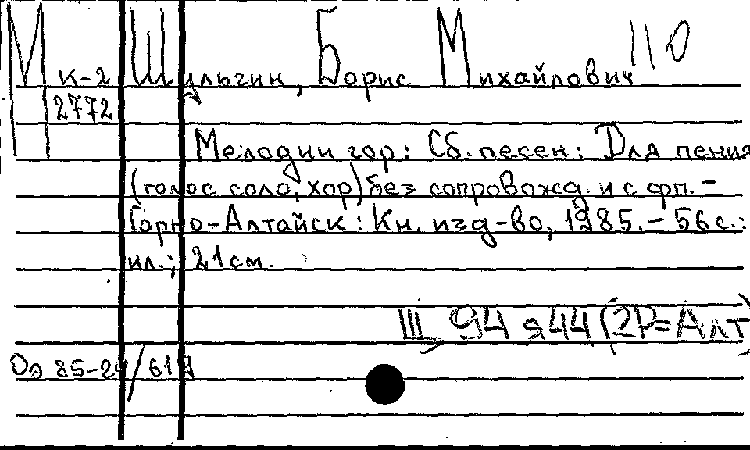 М к-2 Шульгин, Борис Михайлович 110
2772
Мелодии гор: Сб. песен: Для пения
(голос соло, хор) без сопровожд. и с фп. –
Горно-Алтайск: Кн. изд-во, 1985. – 56 с.:
ил.; 21 см.
Ш 94 я44 (2Р=Алт)
85-24/